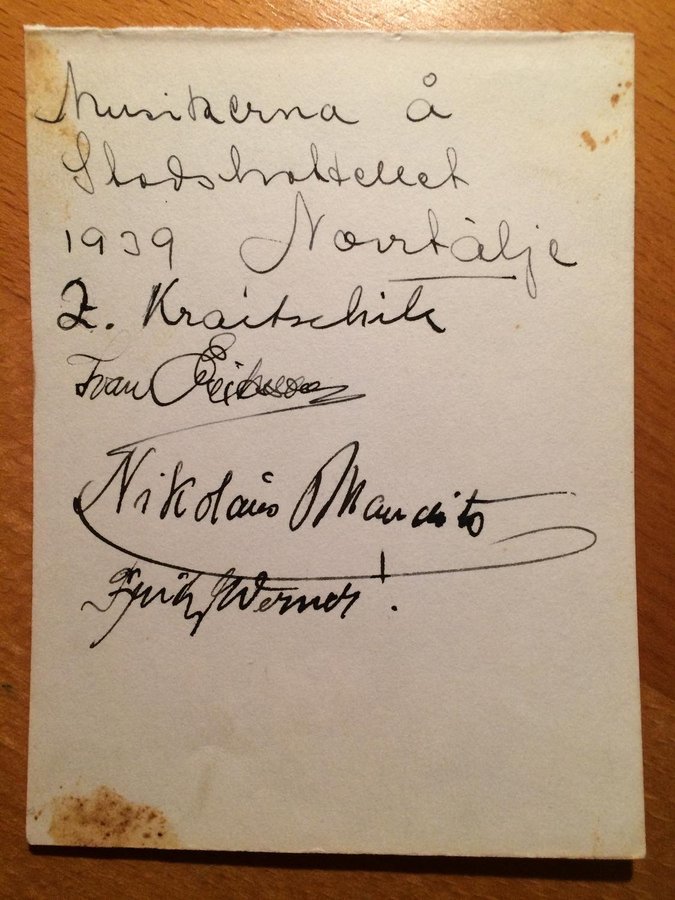 Musikerna å
Stadshotellet
1939 Norrtälje
Z. Kraitschik
Ivan Erikson
Nikolaus Mancuito
Fritz Werner!